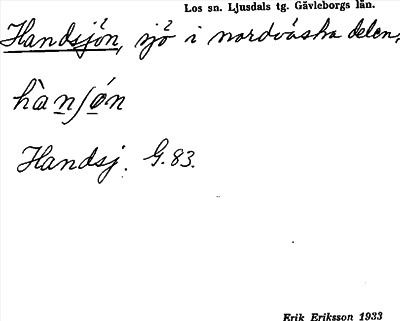 Los sn. Ljusdals tg. Gävleborgs län.
Handsjön, sjö i nordvästra delen.
hànʃǿn
Handsj. G. 83.
Erik Eriksson 1933